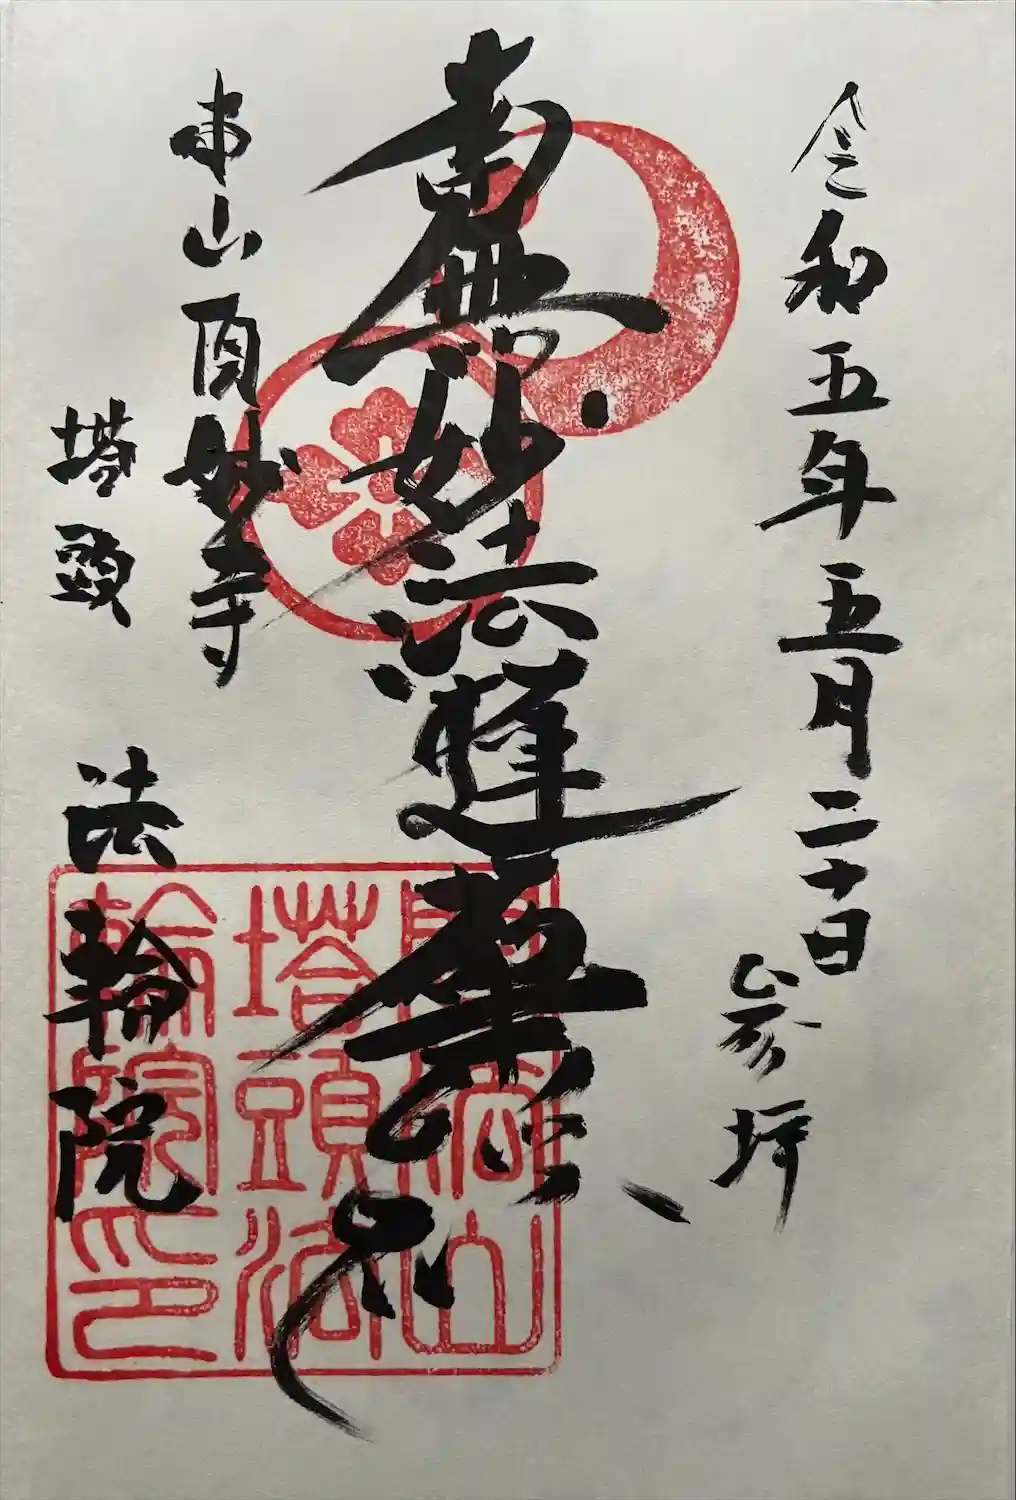 令和五年五月二十日
参拝
南無妙法蓮華経
山 妙寺
塔頭 法輪院
山
塔頭法
輪院印